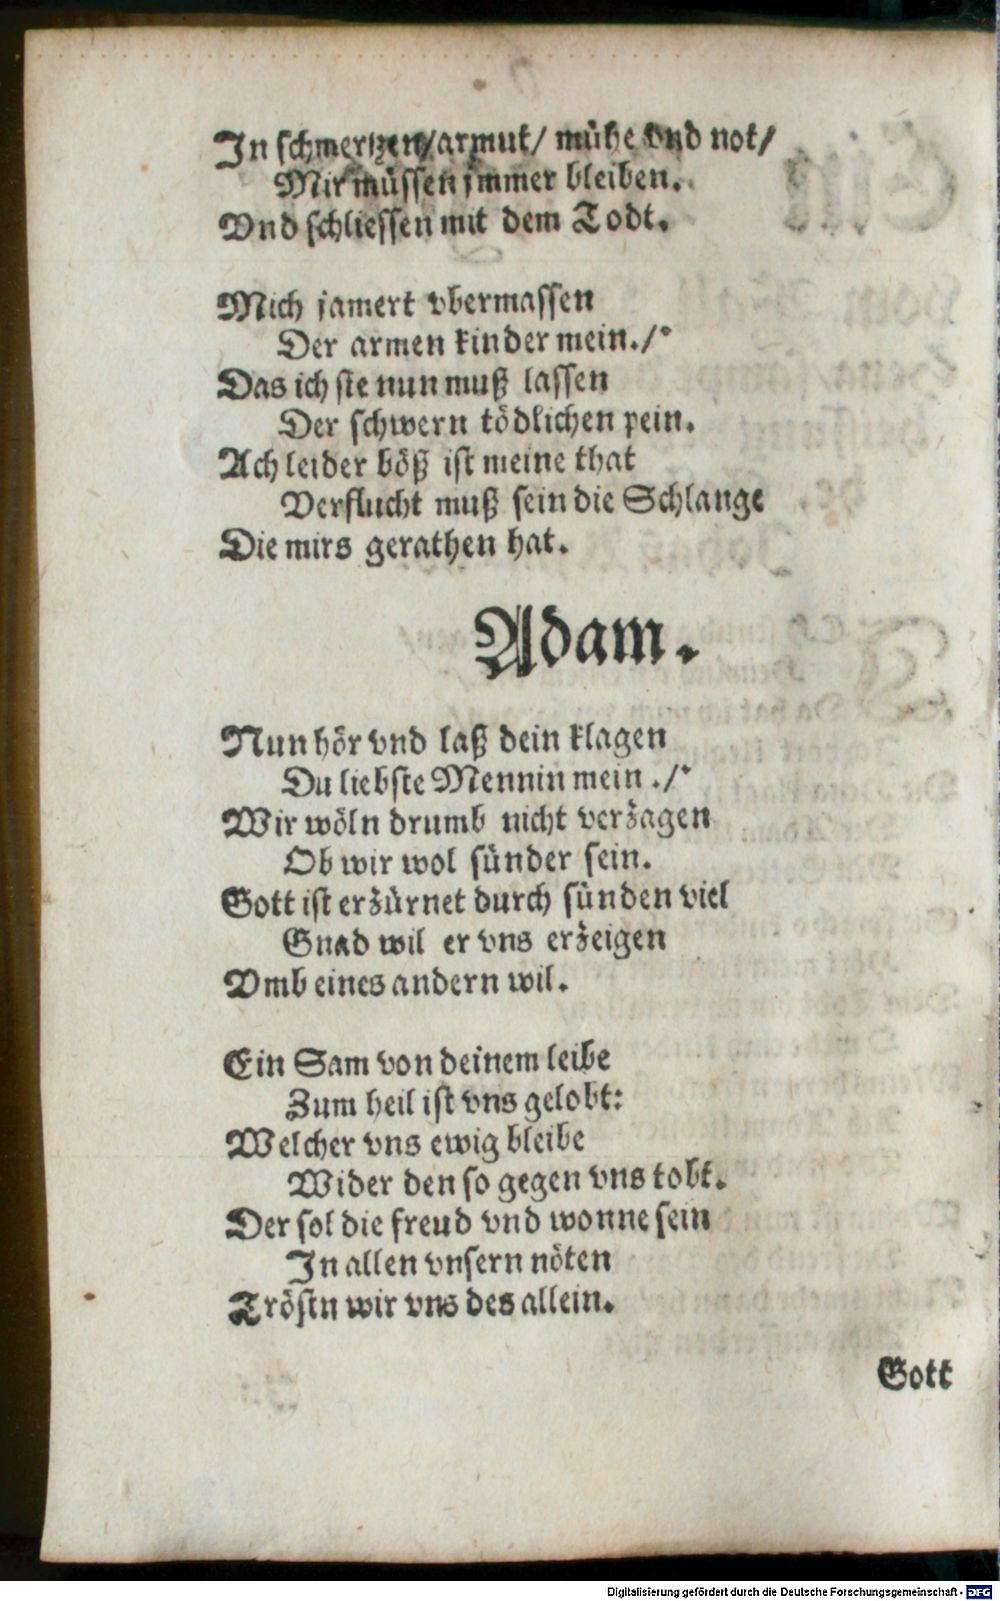 In schmertzen/armut/ mühe vnd not/
Mir müssen jmmer bleiben.
Vnd schliessen mit dem Todt.
Mich jamert vbermassen
Der armen kinder mein./:
Das ich sie nun muß lassen
Der schwern tödlichen pein.
Ach leider böß ist meine that
Verflucht muß sein die Schlange
Die mirs gerathen hat.
Adam.
Nun hör vnd laß dein klagen
Du liebste Mennin mein ./:
Wir wöln drumb nicht verzagen
Ob wir wol sünder sein.
Gott ist erzürnet durch sünden viel
Gnad wil er vns erzeigen
Vmb eines andern wil.
Ein Sam von deinem leibe
Zum heil ist vns gelobt:
Welcher vns ewig bleibe
Wider den so gegen vns tobt.
Der sol die freud vnd wonne sein
In allen vnsern nöten
Tröstn wir vns des allein.
Gott
Digitalisierung gefördert durch die Deutsche Forschungsgemeinschaft - DFG